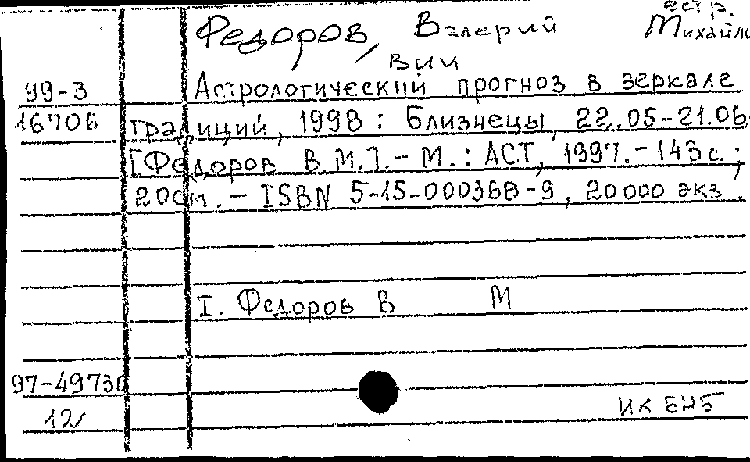 астр.
Федоров, Валерий Михайло
вич
99-3 Астрологический прогноз в зеркале
16706 традиций, 1998 : Близнецы, 22.05-21.06
[Федоров В.М.]. - М. : АСТ, 1997. - 143 с. ;
20 см. - ISBN 5-15-000368-9, 20000 экз.
I. Федоров В М
97-4973
12